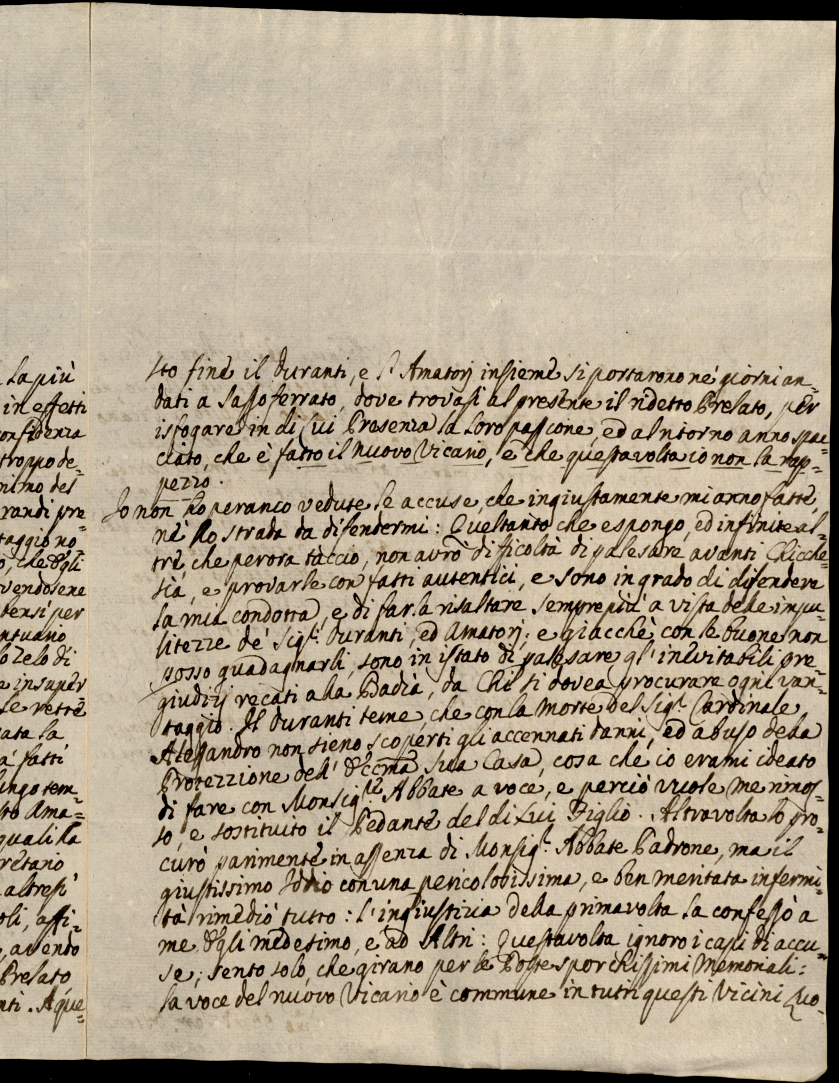 la più
in effetti
onfidenza
troppo de=
nimo del
randi pre=
taggio no=
o, che Egli
vendosene
bensì per
ntuario
lo Zelo di
e in super
le rette
ata la
a' fatti
lungo tem=
sto Ama=
quali ha
retano
altresi'
oli, affi=
, avendo
Prelato
nti. A que=
sto fine il Duranti, e l'Amatorj insieme si portarono ne' giorni an=
dati a Sassoferrato, dove trovasi al presente il ridetto Prelato, per
isfogare in di Cui Presenza la loro passione, ed al ritorno anno spac=
ciato, che è fatto il nuovo Vicario, e che questavolta io non la rap=
pezzo.
Io non ho peranco vedute le accuse, che ingiustamente mi anno fatte,
nè ho strada da difendermi: Queltanto che espongo, ed infinite al=
tre, che perora taccio, non avrò difficoltà di palesare avanti Chicche=
sia, e provarle con fatti autentici, e sono in grado di difendere
la mia condotta, e di farla risaltare semprepiù a vista delle impu=
litezze de' Sig.ri Duranti, ed Amatorj; e giacchè con le buone non
posso guadagnarli, sono in istato di palesare gl'inevitabili pre=
giudizij recati alla Badia, da Chi si dovea procurare ogni van=
taggio. Il Duranti teme, che con la morte del Sig.r Cardinale
Alessandro non sieno scoperti gli accennati danni, ed abuso della
Protezzione dell' Eccma Sua Casa, cosa che io erami ideato
di fare con Monsig.re Abbate a voce, e perciò vuole me rimos=
so, e sostituito il Pedante del di Lui Figlio. Altravolta lo pro=
curò parimente in assenza di Monsig.r Abbate Padrone, ma il
giustissimo Iddio con una pericolosissima, e ben meritata infermi=
tà rimediò tutto: l'ingiustizia della primavolta la confessò a
me Egli medesimo, e ad Altri: Questavolta ignoro i capi di accu=
se; sento solo, che girano per le Poste sporchissimi Memoriali:
la voce del nuovo Vicario è commune in tutti questi Vicini Luo=